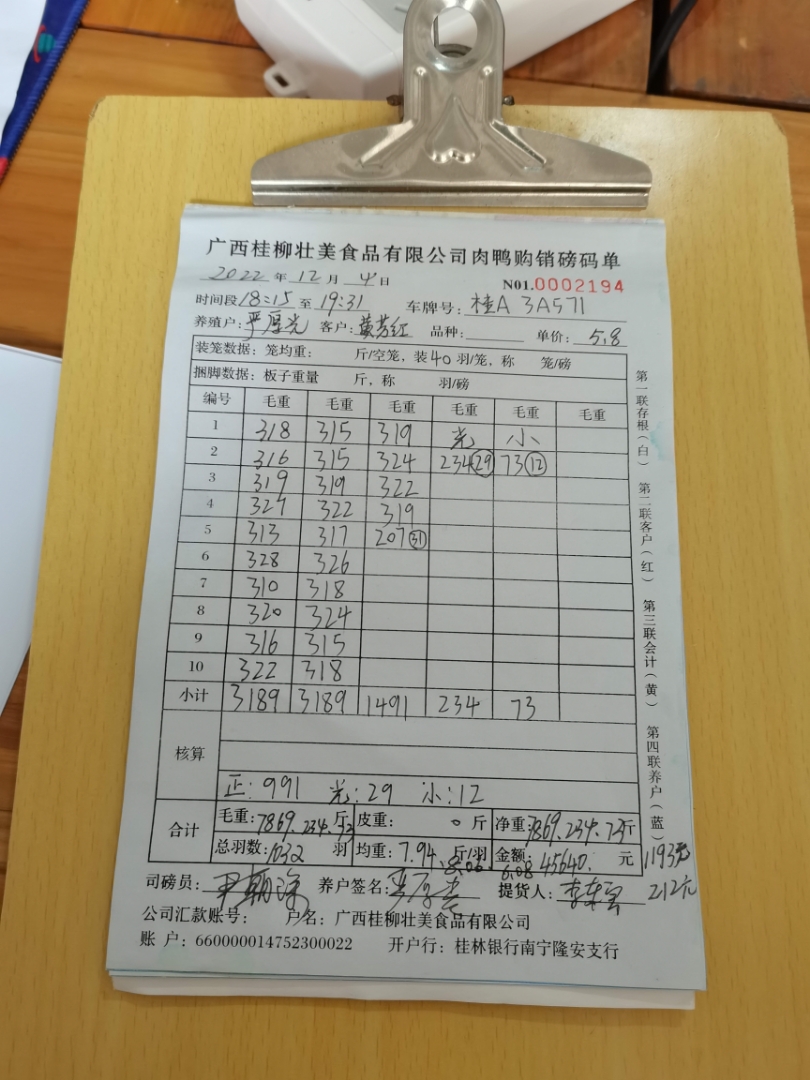 广西桂柳壮美食品有限公司肉鸭购销磅码单
2022 年 12 月 4 日 N01.0002194
时间段 18:15 至 19:31 车牌号: 桂A 3A571
养殖户: 严厚光 客户: 黄芳红 品种: 单价: 5.8
装笼数据: 笼均重: 斤/空笼, 装40 羽/笼, 称 笼/磅
捆脚数据: 板子重量 斤, 称 羽/磅
编号 毛重 毛重 毛重 毛重 毛重 毛重
1 318 315 319 光 小
2 316 315 324 234 29 73 12
3 319 319 322
4 327 322 319
5 313 317 207 31
6 328 326
7 310 318
8 320 324
9 316 315
10 322 318
小计 3189 3189 1491 234 73
核算
正: 991 光: 29 小: 12
合计 毛重: 7869. 234. 73 斤 皮重: 0 斤 净重: 7869. 234. 73 斤
总羽数: 1032 羽 均重: 7.94 斤/羽 金额: 45640. 元 1193元
8.06. 6.08
司磅员: 养户签名: 提货人: 212元
公司汇款账号: 户名: 广西桂柳壮美食品有限公司
账 户: 660000014752300022 开户行: 桂林银行南宁隆安支行
第一联存根(白) 第二联客户(红) 第三联会计(黄) 第四联养户(蓝)